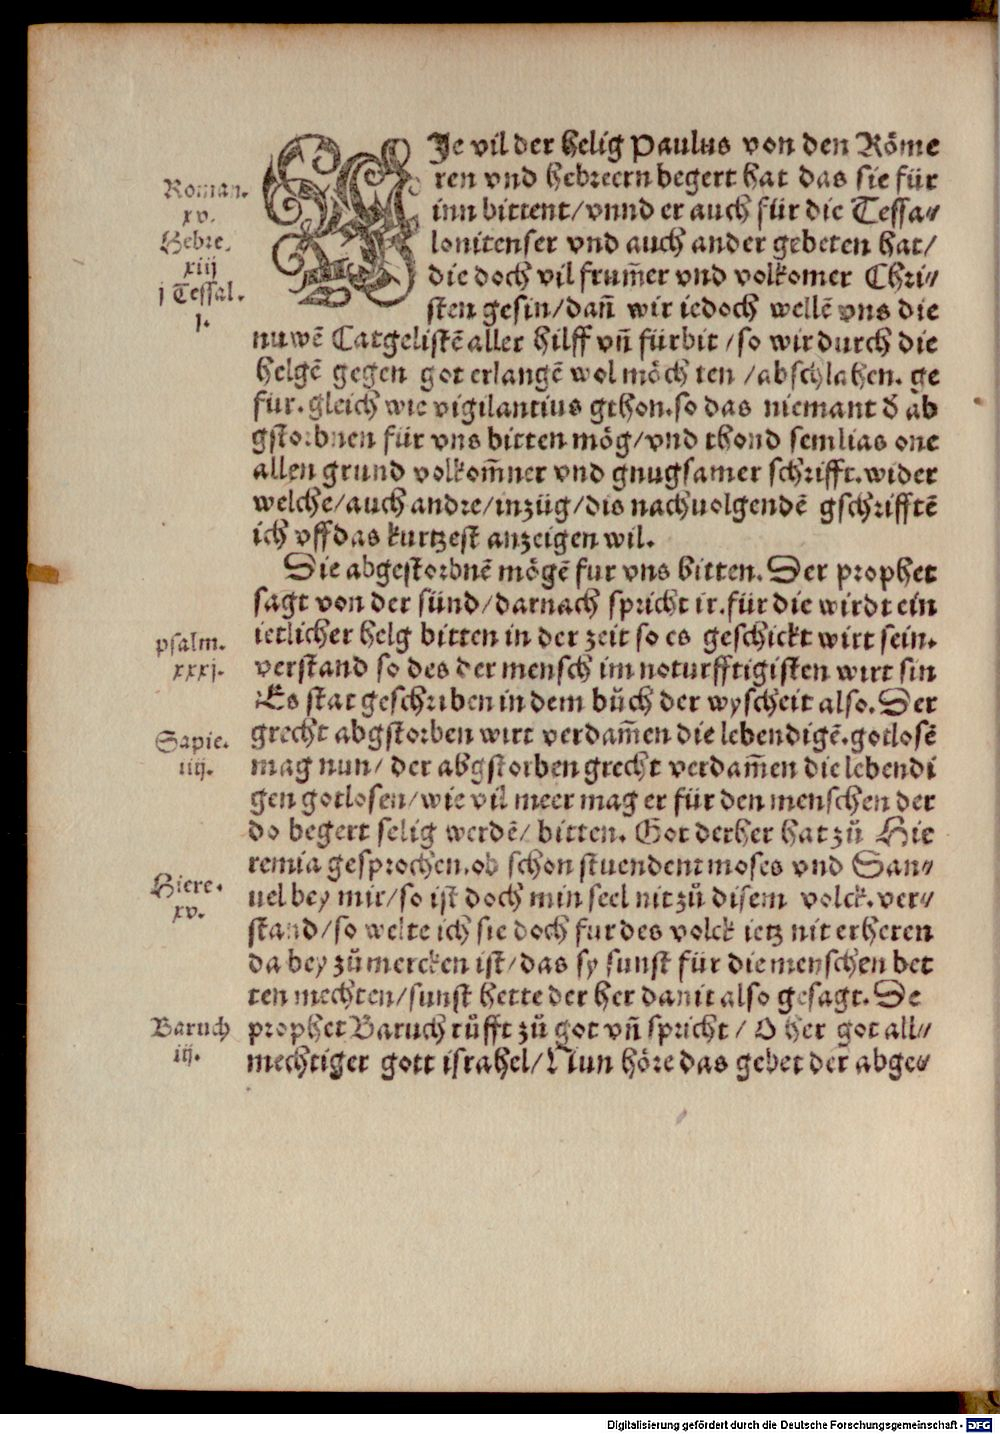 WJe vil der helig Paulus von den Röme
ren vnd hebreern begert hat das sie für
inn bittent/vnnd er auch für die Tessa⸗
lonitenser vnd auch ander gebeten hat/
die doch vil frum̄er vnd volkomer Chri⸗
sten gesin/dañ wir iedoch wellē vns die
nuwē Catgelistē aller hilff vñ fürbit/so wir durch die
helgē gegen got erlangē wol möch ten/abschlahen. ge
fur. gleich wie vigilantius gthon. so das niemant d̄ ab
gstorbnen für vns bitten mög/vnd thond semlias one
allen grund volkom̄ner vnd gnugsamer schrifft. wider
welche/auch andre/inzüg/dis nachuolgendē gschrifftē
ich vff das kurtzest anzeigen wil.
Die abgestorbnē mögē fur vns bitten. Der prophet
sagt von der sünd/darnach spricht ir. für die wirdt ein
ietlicher helg bitten in der zeit so es geschickt wirt sein.
verstand so des der mensch im noturfftigisten wirt sin
Es stat geschriben in dem bůch der wyscheit also. Der
grecht abgstorben wirt verdam̄en die lebendigē. gotlosē
mag nun/ der abgstorben grecht verdam̄en die lebendi
gen gotlosen/wie vil meer mag er für den menschen der
do begert selig werdē/ bitten. Got der her hat zů Hie
remia gesprochen. ob schon stuendent moses vnd San⸗
uel bey mir/so ist doch min seel nit zů disem volck. ver⸗
stand/so welte ich sie doch fur des volck ietz nit erheren
da bey zů mercken ist/das sy sunst für die menschen bet
ten mechten/sunst hette der her danit also gesagt. De
prophet Baruch růfft zů got vñ spricht/ O her got all⸗
mechtiger gott israhel/Nun höre das gebet der abge⸗
Roman.
xv.
Hebre.
xiij
j Tessal.
j.
psalm.
xxxj.
Sapie.
iiij.
Hiere.
xv.
Baruch
iij.
Digitalisierung gefördert durch die Deutsche Forschungsgemeinschaft - DFG